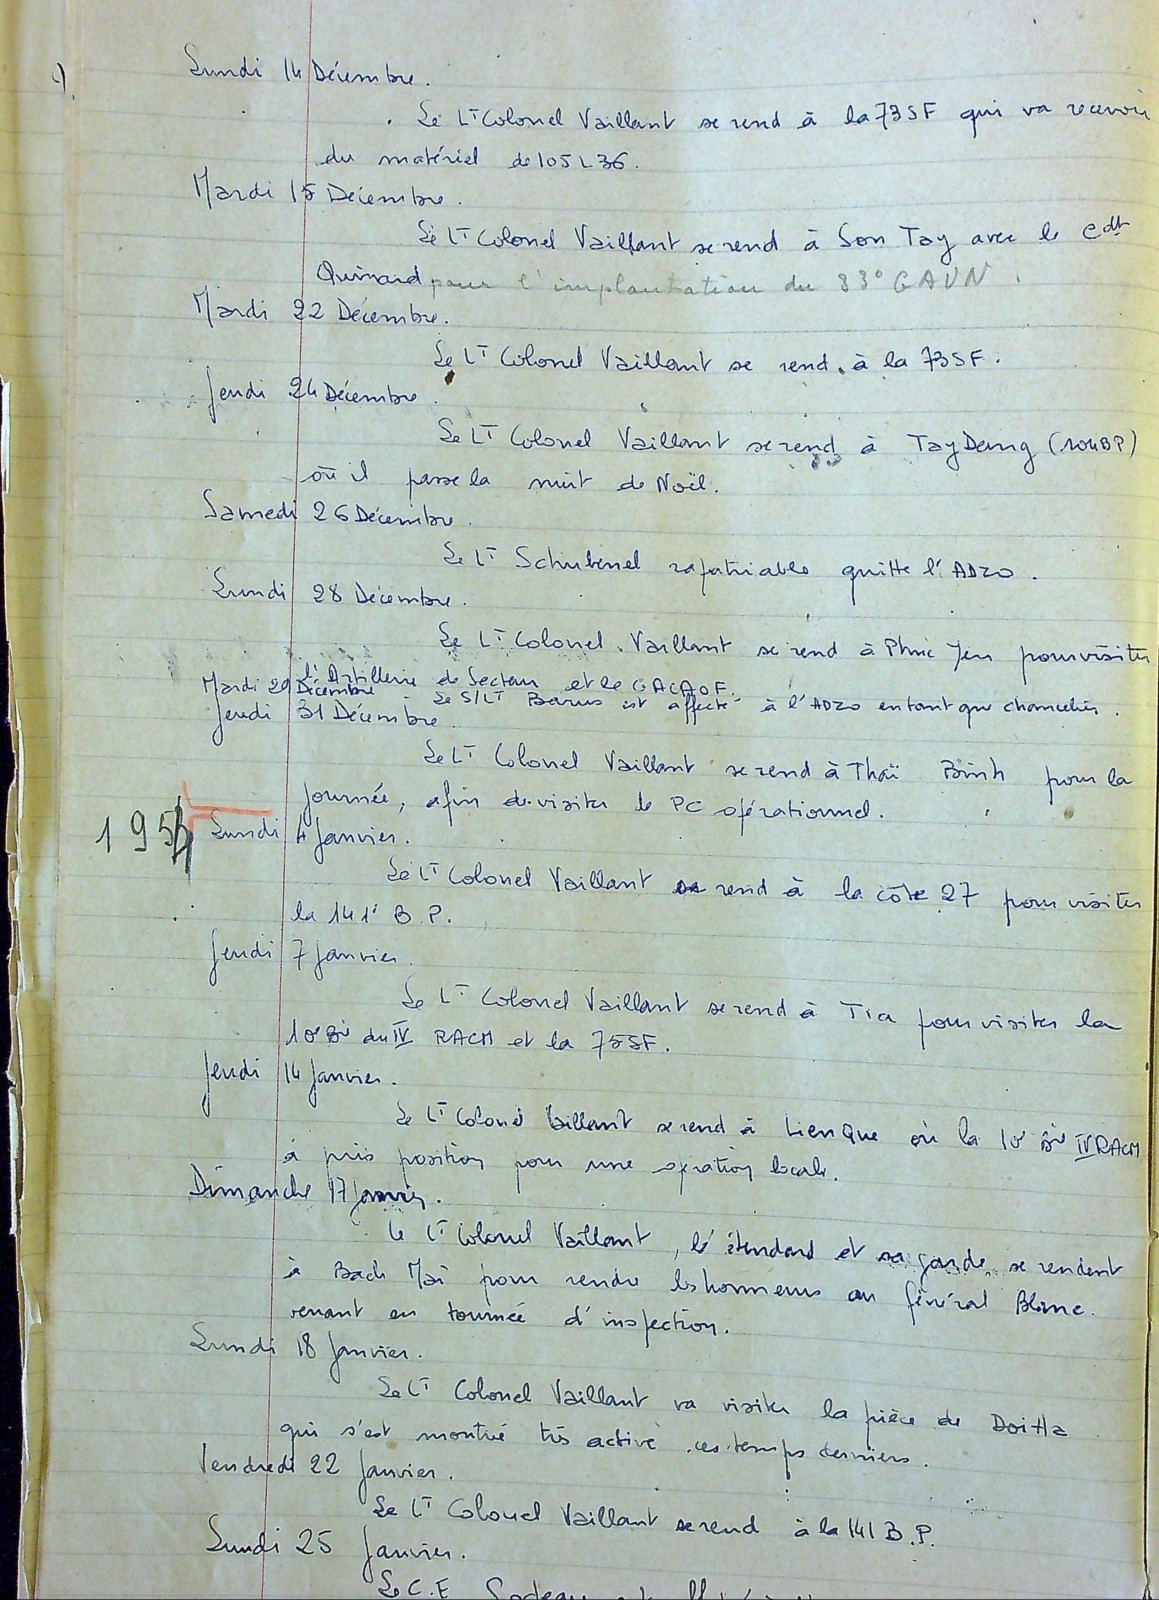 Lundi 14 Décembre.
Le Lt Colonel Vaillant se rend à la 73SF qui va recevoir
du matériel de 105 L 36.
Mardi 15 Décembre.
Le Lt Colonel Vaillant se rend à Son Tay avec le Cdt
Quinard pour l'implantation du 33° GAVN.
Mardi 22 Décembre.
Le Lt Colonel Vaillant se rend à la 73SF.
Jeudi 24 Décembre.
Le Lt Colonel Vaillant se rend à Tay Dang (104BP)
où il passe la nuit de Noël.
Samedi 26 Décembre.
Le Lt Schubenel rapatriable quitte l'ADZO.
Lundi 28 Décembre.
Le Lt Colonel Vaillant se rend à Phuc Yen pour visiter
l'Artillerie de Secteur et le GACAOF.
Mardi 29 Décembre Le S/Lt est affecté à l'ADZO en tant que chancelier.
Jeudi 31 Décembre.
Le Lt Colonel Vaillant se rend à Thaï Binh pour la
journée, afin de visiter le PC opérationnel.
1954 Lundi 4 Janvier.
Le Lt Colonel Vaillant se rend à la côte 27 pour visiter
la 141° B.P.
Jeudi 7 Janvier.
Le Lt Colonel Vaillant se rend à Tia pour visiter la
10e Bie du IV RACM et la 75SF.
Jeudi 14 Janvier.
Le Lt Colonel Vaillant se rend à Lien Que où la 10e Bie IV RACM
à pris position pour une opération locale.
Dimanche 17 Janvier.
Le Lt Colonel Vaillant, l'étendard et sa garde se rendent
à Bach Maï pour rendre les honneurs au Général Blanc
venant en tournée d'inspection.
Lundi 18 Janvier.
Le Lt Colonel Vaillant va visiter la pièce de Doi Ha
qui s'est montré très active ces temps derniers.
Vendredi 22 Janvier.
Le Lt Colonel Vaillant se rend à la 141 B.P.
Lundi 25 Janvier.
Le C.E